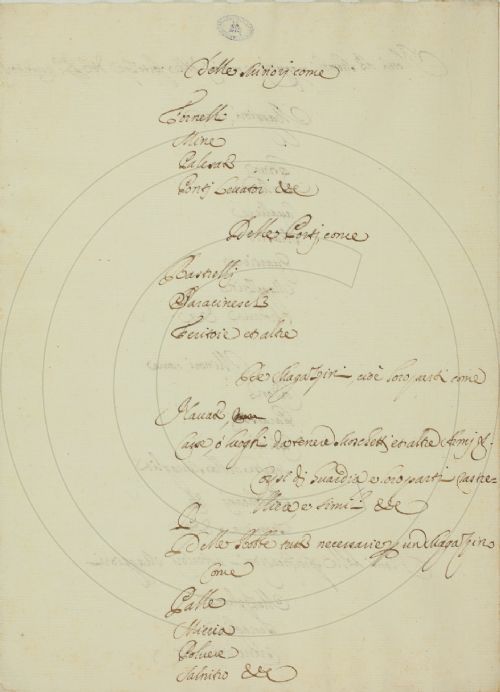 Delle minori come
Fornelli
Mine
Palizate
Ponti Levatoi &c
Delle Porti, come
Rastrelli
Saracinesche
Feritoie et altre
De Magazini, cioè loro parti come
ò luoghi da tenere Moschetti et altre Armi &
Corpi di Guardia e loro parti Rastre=
lliere e simili &c
Delle Robbe tutte necessarie p un Magazino
Come
Palle
Miccia
Polvere
Salnitro &c